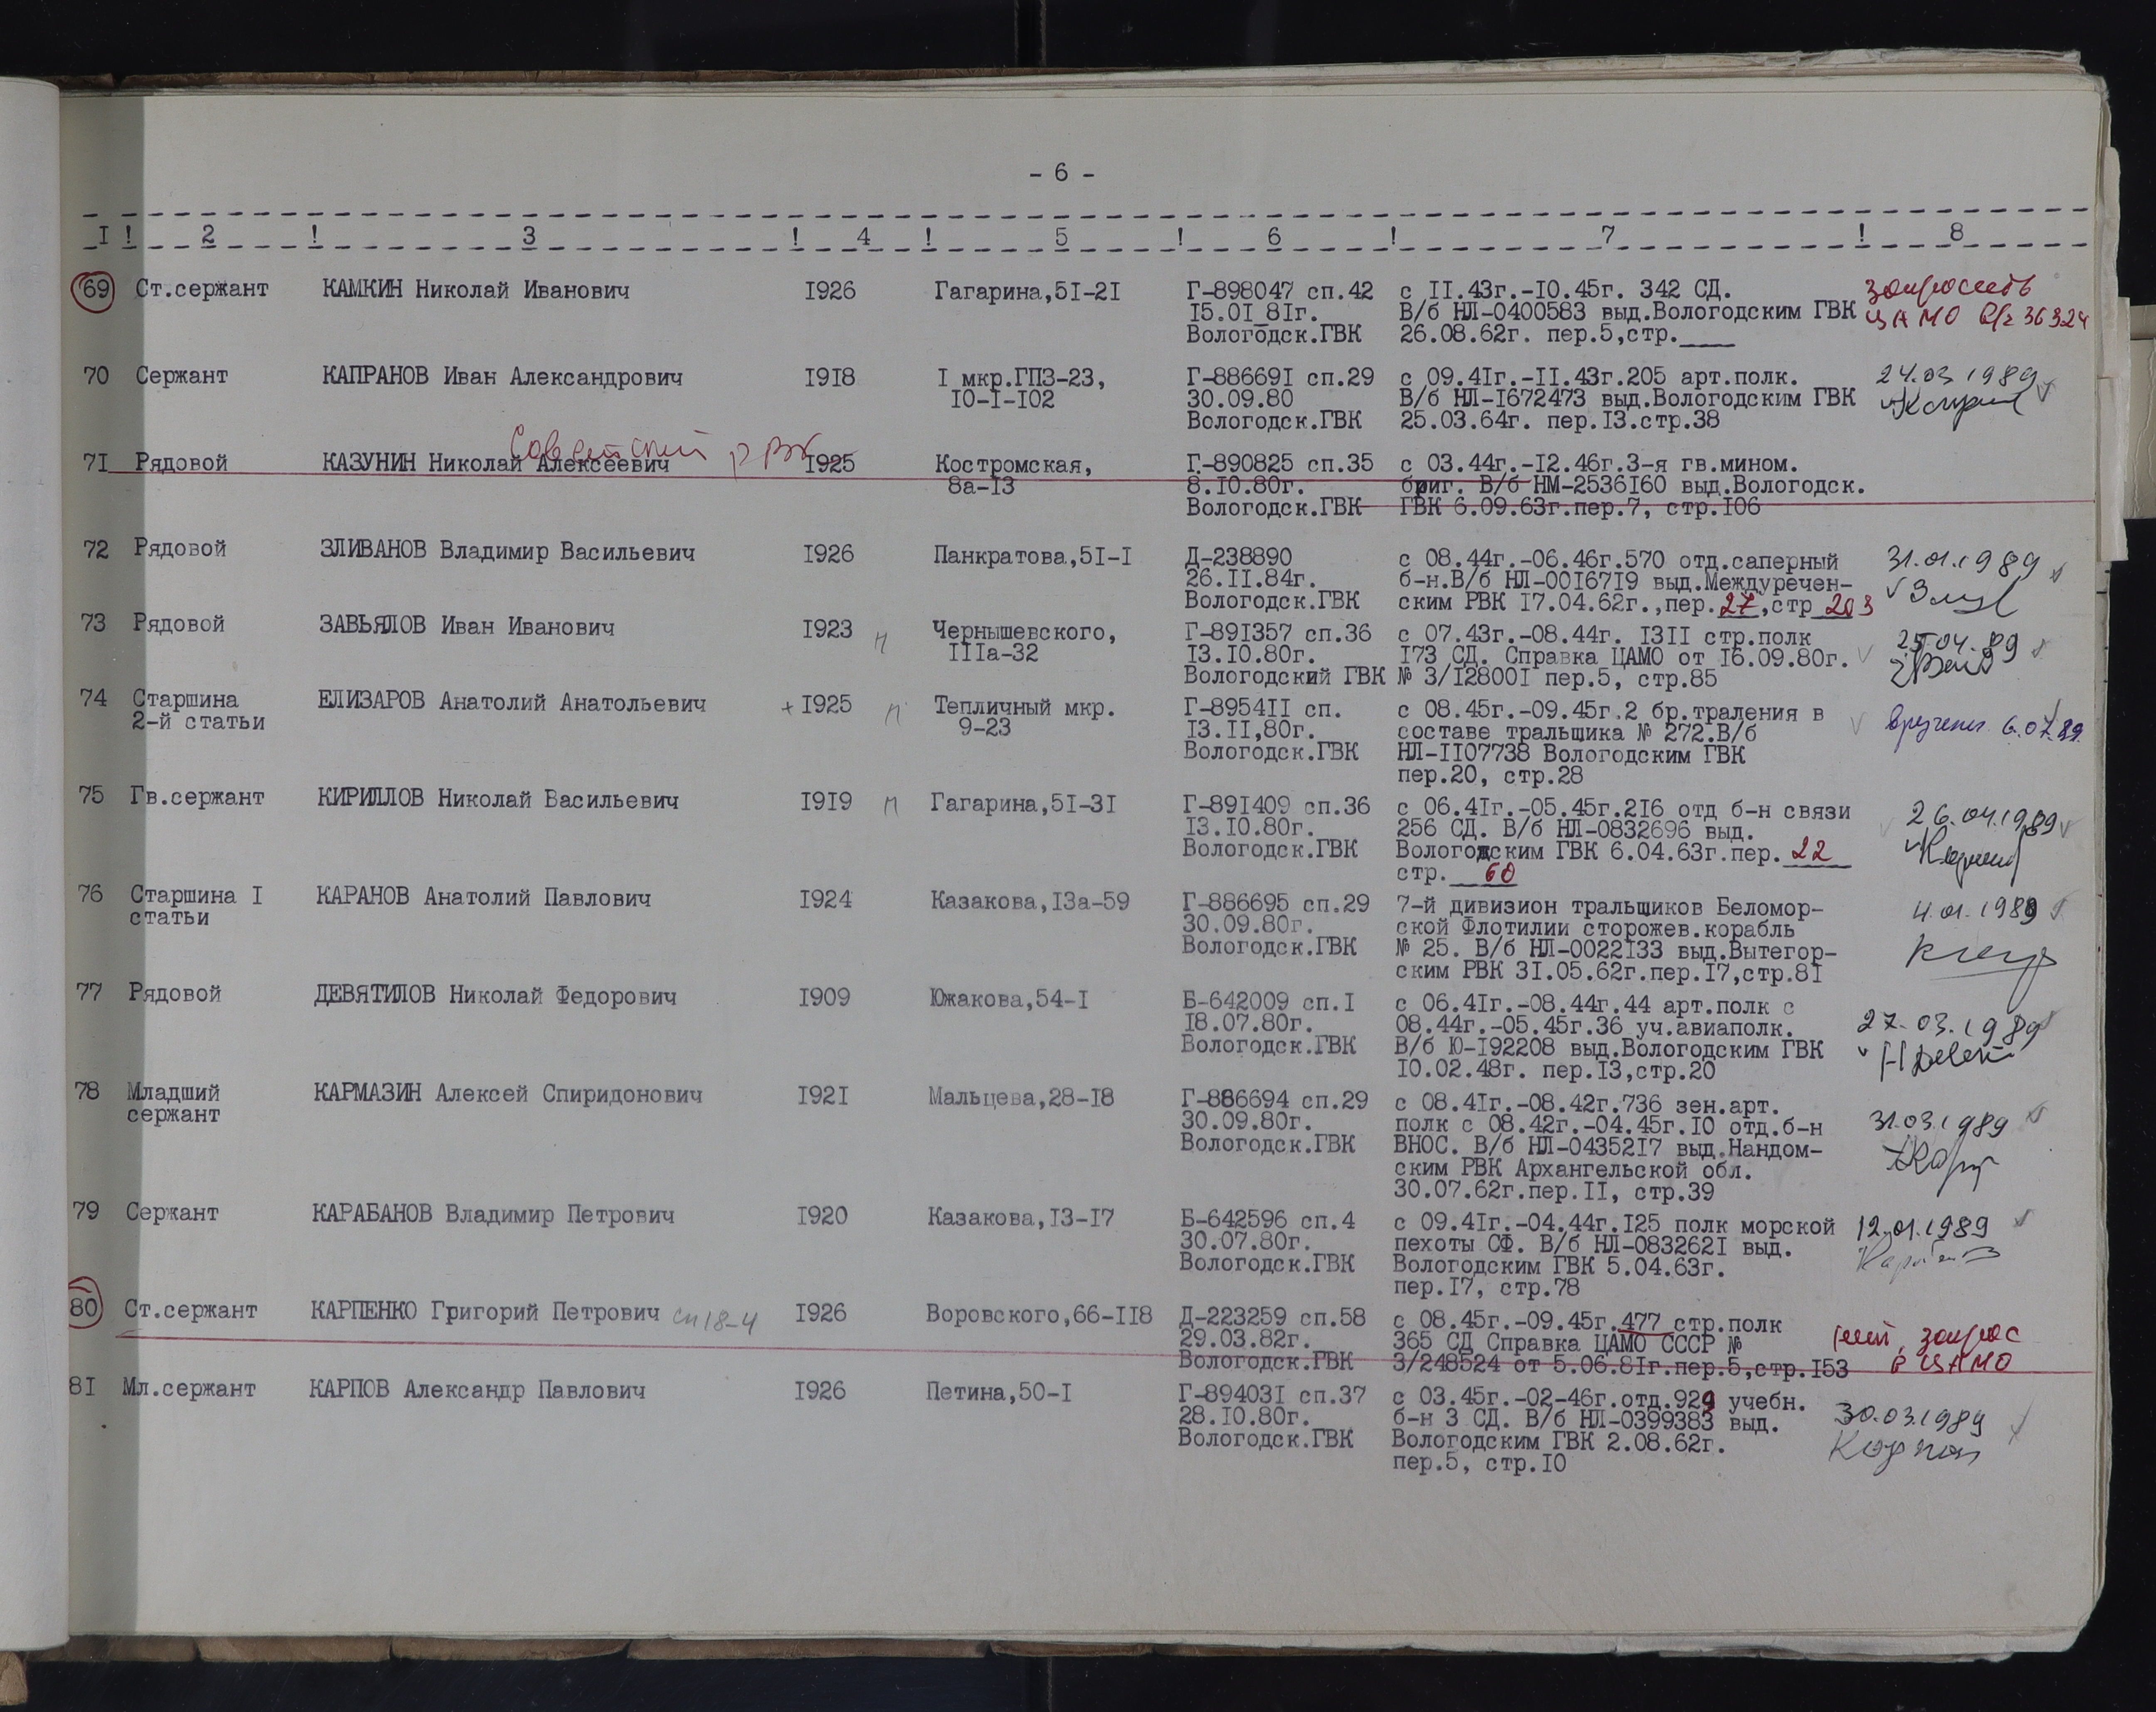 - 6 -
I ! 2 ! 3 ! 4 ! 5 ! 6 ! 7 ! 8
69 Ст.сержант КАМКИН Николай Иванович I926 Гагарина,5I-2I Г-898047 сп.42 с II.43г.-I0.45г. 342 СД. запросить
I5.0I 8Iг. В/б НЛ-0400583 выд.Вологодским ГВК ЦАМО 36324
Вологодск.ГВК 26.08.62г. пер.5,стр.____
70 Сержант КАПРАНОВ Иван Александрович I9I8 I мкр.ГПЗ-23, Г-88669I сп.29 с 09.4Iг.-II.43г.205 арт.полк. 24.03 1989
I0-I-I02 30.09.80 В/б НЛ-I672473 выд.Вологодским ГВК
Вологодск.ГВК 25.03.64г. пер.I3.стр.38
Советский РВК
7I Рядовой КАЗУНИН Николай Алексеевич I925 Костромская, Г-890825 сп.35 с 03.44г.-I2.46г.3-я гв.мином.
8а-I3 8.I0.80г. бриг. В/б НМ-2536I60 выд.Вологодск.
Вологодск.ГВК ГВК 6.09.63г.пер.7, стр.I06
72 Рядовой ЗЛИВАНОВ Владимир Васильевич I926 Панкратова,5I-I Д-238890 с 08.44г.-06.46г.570 отд.саперный 31.01.1989
26.II.84г. б-н.В/б НЛ-00I67I9 выд.Междуречен-
Вологодск.ГВК ским РВК I7.04.62г.,пер.27,стр 203
73 Рядовой ЗАВЬЯЛОВ Иван Иванович I923 п Чернышевского, Г-89I357 сп.36 с 07.43г.-08.44г. I3II стр.полк 25.04.89
IIIа-32 I3.I0.80г. I73 СД. Справка ЦАМО от I6.09.80г.
Вологодский ГВК № 3/I2800I пер.5, стр.85
74 Старшина ЕЛИЗАРОВ Анатолий Анатольевич + I925 п Тепличный мкр. Г-8954II сп. с 08.45г.-09.45г.2 бр.траления в вручена 6.07.89
2-й статьи 9-23 I3.II,80г. составе тральщика № 272.В/б
Вологодск.ГВК НЛ-II07738 Вологодским ГВК
пер.20, стр.28
75 Гв.сержант КИРИЛЛОВ Николай Васильевич I9I9 п Гагарина,5I-3I Г-89I409 сп.36 с 06.4Iг.-05.45г.2I6 отд б-н связи 26.04.1989
I3.I0.80г. 256 СД. В/б НЛ-0832696 выд.
Вологодск.ГВК Вологодским ГВК 6.04.63г.пер. 22
стр. 60
76 Старшина I КАРАНОВ Анатолий Павлович I924 Казакова,I3а-59 Г-886695 сп.29 7-й дивизион тральщиков Беломор- 4.01.1989
статьи 30.09.80г. ской Флотилии сторожев.корабль
Вологодск.ГВК № 25. В/б НЛ-0022I33 выд.Вытегор-
ским РВК 3I.05.62г.пер.I7,стр.8I
77 Рядовой ДЕВЯТИЛОВ Николай Федорович I909 Южакова,54-I Б-642009 сп.I с 06.4Iг.-08.44г.44 арт.полк с
I8.07.80г. 08.44г.-05.45г.36 уч.авиаполк. 27.03.1989
Вологодск.ГВК В/б Ю-I92208 выд.Вологодским ГВК
I0.02.48г. пер.I3,стр.20
78 Младший КАРМАЗИН Алексей Спиридонович I92I Мальцева,28-I8 Г-886694 сп.29 с 08.4Iг.-08.42г.736 зен.арт.
сержант 30.09.80г. полк с 08.42г.-04.45г.I0 отд.б-н 31.03.1989
Вологодск.ГВК ВНОС. В/б НЛ-04352I7 выд.Няндом-
ским РВК Архангельской обл.
30.07.62г.пер.II, стр.39
79 Сержант КАРАБАНОВ Владимир Петрович I920 Казакова,I3-I7 Б-642596 сп.4 с 09.4Iг.-04.44г.I25 полк морской 12.01.1989
30.07.80г. пехоты СФ. В/б НЛ-083262I выд.
Вологодск.ГВК Вологодским ГВК 5.04.63г.
пер.I7, стр.78
80 Ст.сержант КАРПЕНКО Григорий Петрович сп 18-4 I926 Воровского,66-II8 Д-223259 сп.58 с 08.45г.-09.45г.477 стр.полк
29.03.82г. 365 СД Справка ЦАМО СССР № запрос
Вологодск.РВК 3/248524 от 5.06.8Iг.пер.5,стр.I53 в ЦАМО
8I Мл.сержант КАРПОВ Александр Павлович I926 Петина,50-I Г-89403I сп.37 с 03.45г.-02-46г.отд.929 учебн.
28.I0.80г. б-н 3 СД. В/б НЛ-0399383 выд. 30.03.1989
Вологодск.ГВК Вологодским ГВК 2.08.62г.
пер.5, стр.I0